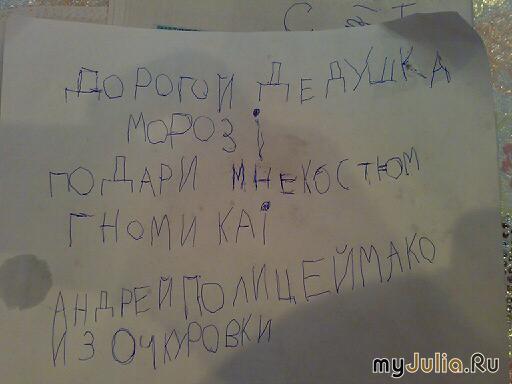 ДОРОГОЙ ДЕДУШКА
МОРОЗ¡
ПОДАРИ МНЕКОСТЮМ
ГНОМИКА¡
АНДРЕЙ ПОЛИЦЕЙМАКО
ИЗ ОЧКУРОВКИ
myJulia.Ru